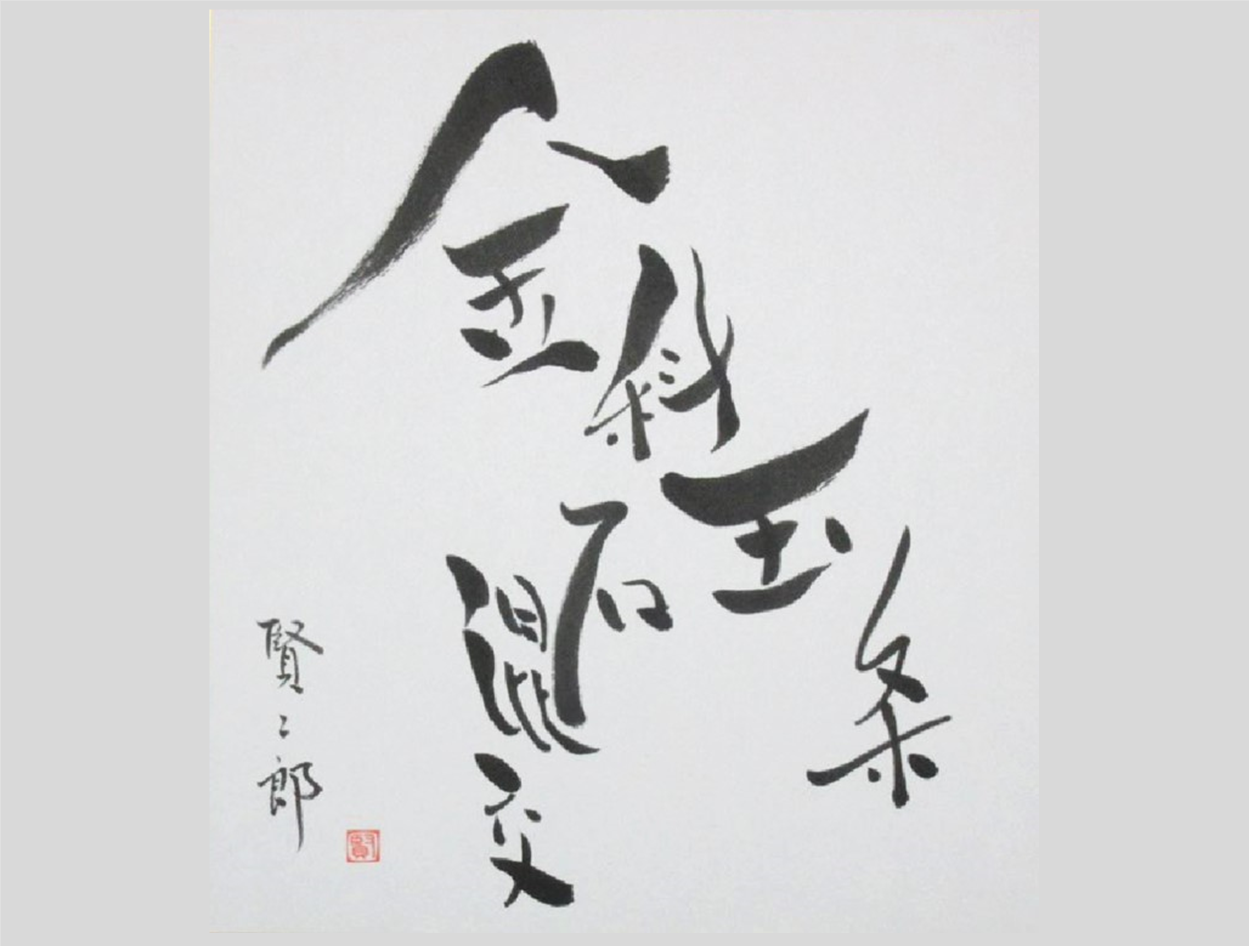 金科玉条
石混交
賢二郎
賢